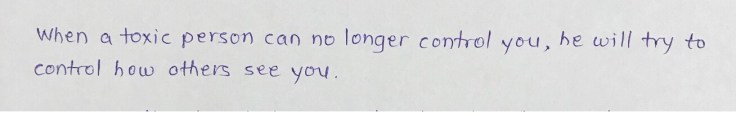 When a toxic person can no longer control you, he will try to
control how others see you.